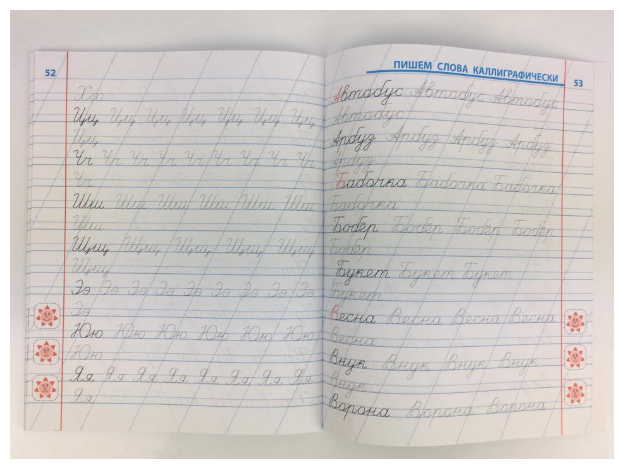 52
Хх
Цц Цц Цц Цц Цц Цц Цц
Цц
Чч Чч Чч Чч Чч Чч Чч Чч
Чч
Шш Шш Шш Шш Шш Шш
Шш
Щщ Щщ Щщ Щщ Щщ
Щщ
Ээ Ээ Ээ Ээ Ээ Ээ Ээ Ээ
Ээ
Юю Юю Юю Юю Юю Юю
Юю
Яя Яя Яя Яя Яя Яя Яя Яя
Яя
ПИШЕМ СЛОВА КАЛЛИГРАФИЧЕСКИ 53
Автобус Автобус Автобус
Автобус
Арбуз Арбуз Арбуз Арбуз
Арбуз
Бабочка Бабочка Бабочка
Бабочка
Бобёр Бобёр Бобёр Бобёр
Бобёр
Букет Букет Букет
Букет
Весна Весна Весна Весна
Весна
Внук Внук Внук Внук
Внук
Ворона Ворона Ворона